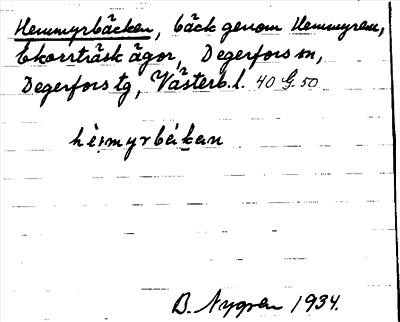 Hemmyrbäcken, bäck genom Hemmyren,
Ekorrträsk ägor, Degerfors sn,
Degerfors tg, Västerb. l. 40 G. 50
hèı̣myrbäkan
B. Nygren 1934.